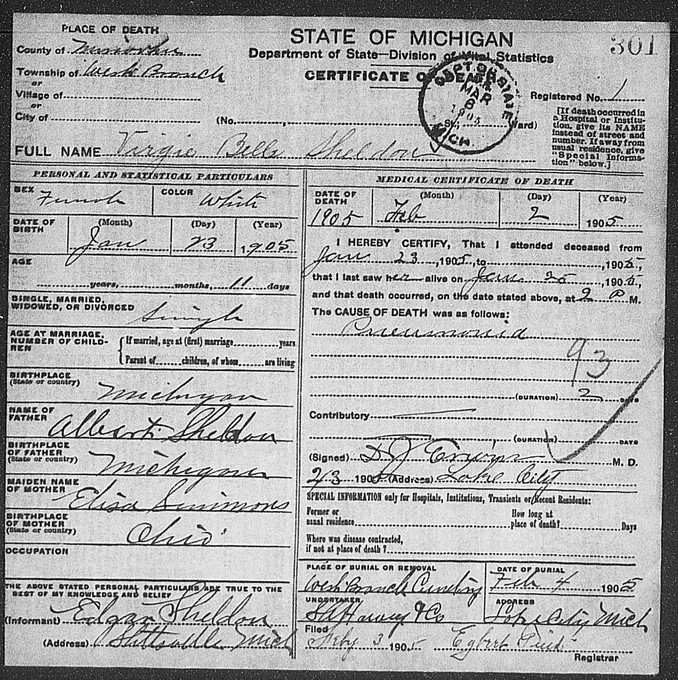 PLACE OF DEATH
STATE OF MICHIGAN
301
County of
Department of State—Division of Vital Statistics
Township of West Branch
CERTIFICATE OF DEATH
or
Village of
Registered No. 1
or
City of (No. Ward)
[If death occurred in a Hospital or Institution, give its NAME instead of street and number. If away from usual residence, give "Special Information" below.]
DEPT. OF STATE
MAR
6
1905
MICH.
FULL NAME Virgie Belle Sheldon
PERSONAL AND STATISTICAL PARTICULARS
SEX Female COLOR White
DATE OF BIRTH (Month) (Day) (Year)
Jan 23 1905
AGE
years, months, 11 days
SINGLE, MARRIED, WIDOWED, OR DIVORCED Single
AGE AT MARRIAGE, NUMBER OF CHILDREN
If married, age at (first) marriage years
Parent of children, of whom are living
BIRTHPLACE (State or country) Michigan
NAME OF FATHER Albert Sheldon
BIRTHPLACE OF FATHER (State or country) Michigan
MAIDEN NAME OF MOTHER Elisa Simmons
BIRTHPLACE OF MOTHER (State or country) Ohio
OCCUPATION
THE ABOVE STATED PERSONAL PARTICULARS ARE TRUE TO THE BEST OF MY KNOWLEDGE AND BELIEF
(Informant) Edgar Sheldon
(Address) Stittsville Mich
MEDICAL CERTIFICATE OF DEATH
DATE OF DEATH (Month) (Day) (Year)
1905 Feb 2 1905
I HEREBY CERTIFY, That I attended deceased from
Jan 23, 1905, to , 1905,
that I last saw her alive on Jan 25, 1905,
and that death occurred, on the date stated above, at 2 P M.
The CAUSE OF DEATH was as follows:
Pneumonia
93
(DURATION) 2 DAYS
Contributory
(DURATION) DAYS
(Signed) D J M. D.
2/3 190 (Address) Lake City
SPECIAL INFORMATION only for Hospitals, Institutions, Transients or Recent Residents:
Former or usual residence
How long at place of death? Days
Where was disease contracted, if not at place of death?
PLACE OF BURIAL OR REMOVAL DATE OF BURIAL
West Branch Cemetery Feb 4 1905
UNDERTAKER ADDRESS
& Co Lake City Mich
Filed 3 1905 Egbert
Registrar